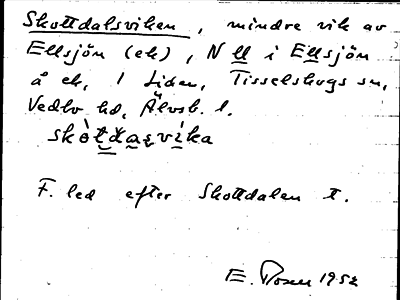 Skottdalsviken, mindre vik av
Ellsjön (ek), N ll i Ellsjön
å ek, 1 Liden, Tisselskogs sn,
Vedbo hd, Älvsb. l.
skòtdasvika
F. led efter Skottdalen t.
E. Rosen 1952